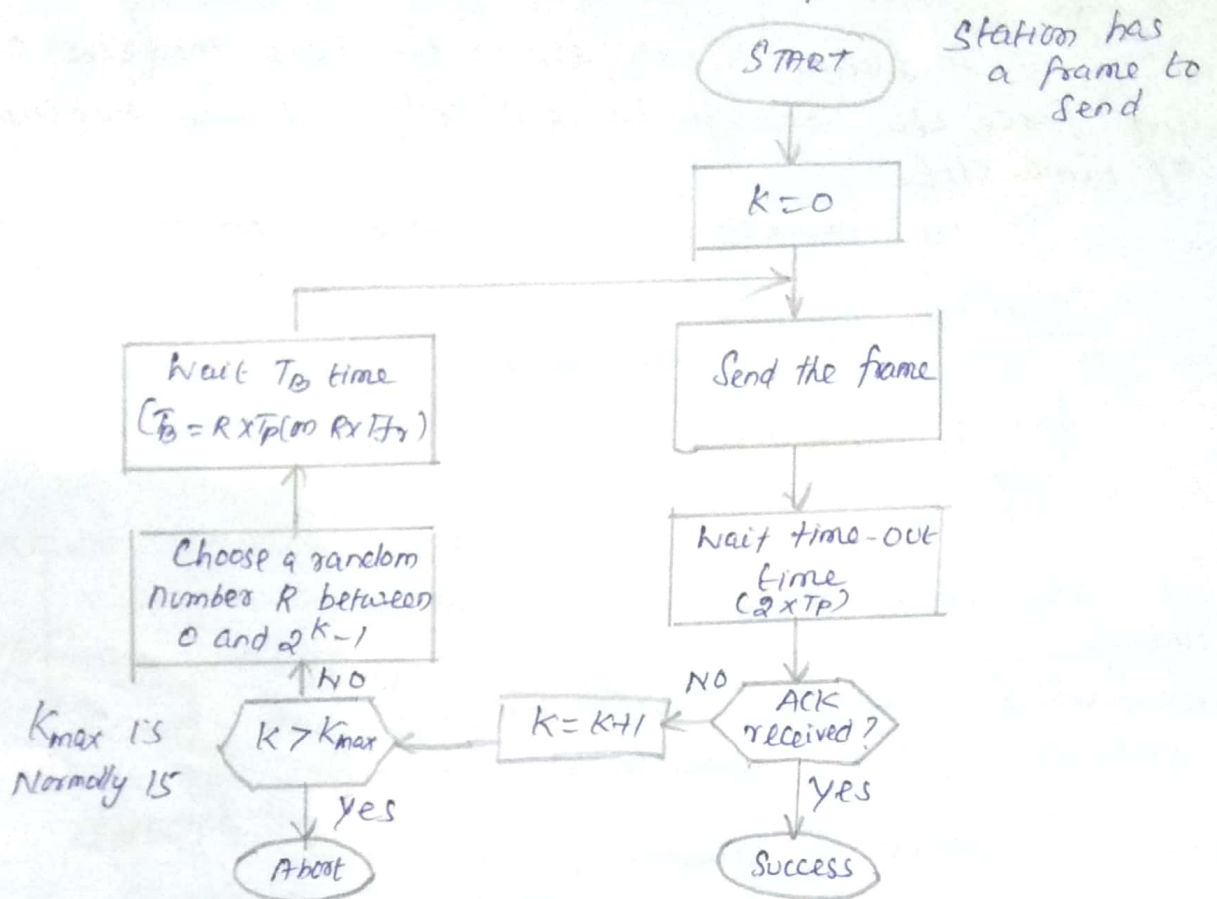 START
Station has
a frame to
Send
K=0
Send the frame
Wait time-out
time
(2xTP)
ACK
received?
NO
Yes
Success
K=K+1
K>Kmax
Kmax is
Normally 15
Yes
Abort
NO
Choose a random
number R between
0 and 2^K-1
Wait TB time
(TB=RxTp(or RxTfr)